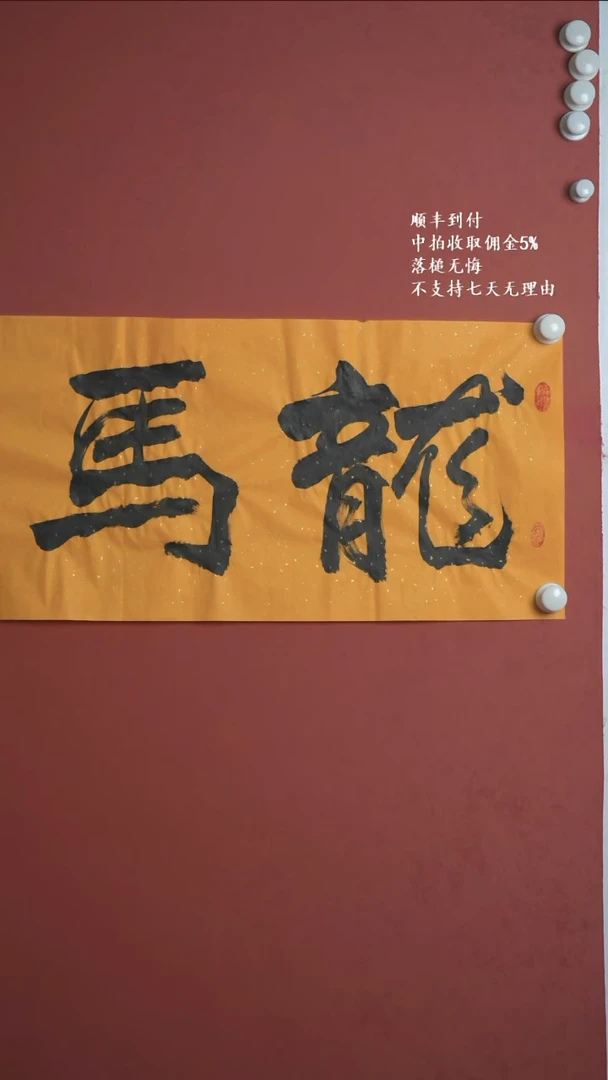 顺丰到付
中拍收取佣金5%
落槌无悔
不支持七天无理由
龍馬